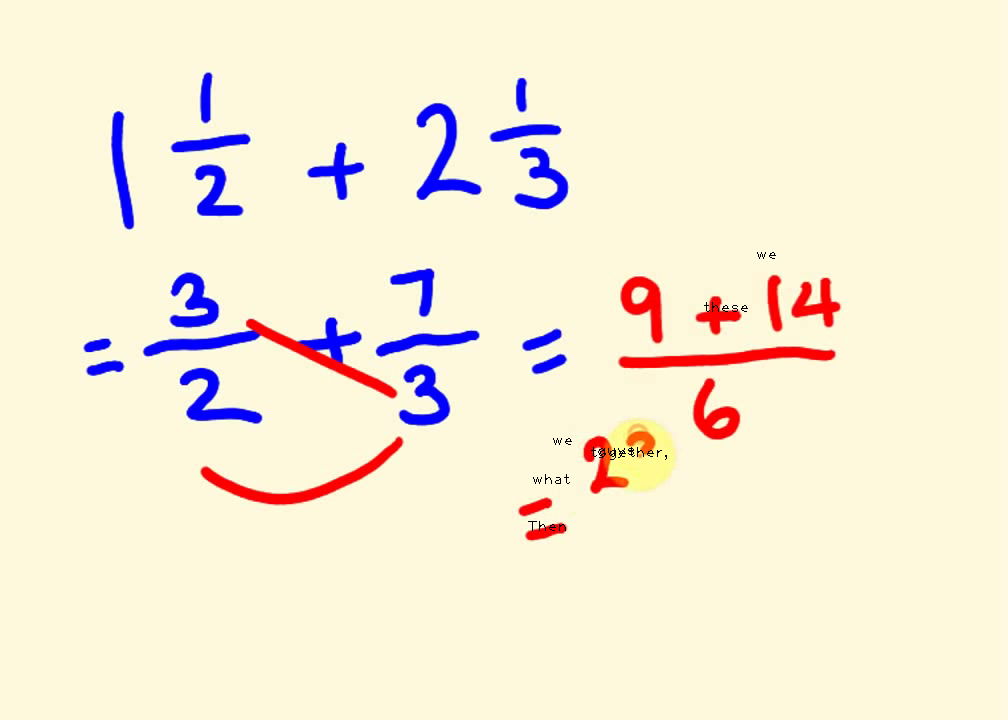 1 1/2 + 2 1/3
= 3/2 + 7/3 = (9 + 14)/6
= 2
we
these
we
together,
what
Then